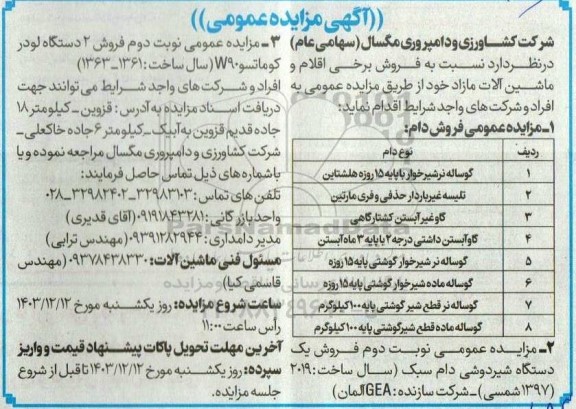 ((آگهی مزایده عمومی))
شرکت کشاورزی و دامپروری مگسال (سهامی عام)
درنظر دارد نسبت به فروش برخی اقلام و
ماشین آلات مازاد خود از طریق مزایده عمومی به
افراد و شرکت های واجد شرایط اقدام نماید:
۱ـ مزایده عمومی فروش دام:
ردیف نوع دام
۱ گوساله نر شیرخوار با پایه ۱۵ روزه هلشتاین
۲ تلیسه غیرباردار حذفی و فری مارتین
۳ گاو غیر آبستن کشتارگاهی
۴ گاو آبستن داشتی درجه ۲ با پایه ۳ ماه آبستن
۵ گوساله نر شیرخوار گوشتی پایه ۱۵ روزه
۶ گوساله ماده شیرخوار گوشتی پایه ۱۵ روزه
۷ گوساله نر قطع شیر گوشتی پایه ۱۰۰ کیلوگرم
۸ گوساله ماده قطع شیر گوشتی پایه ۱۰۰ کیلوگرم
۲ـ مزایده عمومی نوبت دوم فروش یک
دستگاه شیردوشی دام سبک (سال ساخت: ۲۰۱۹
(۱۳۹۷ شمسی) ـ شرکت سازنده: GEA آلمان)
۳ـ مزایده عمومی نوبت دوم فروش ۲ دستگاه لودر
کوماتسو W۹۰ (سال ساخت: ۱۳۶۱ـ ۱۳۶۳)
افراد و شرکت های واجد شرایط می توانند جهت
دریافت اسناد مزایده به آدرس: قزوین ـ کیلومتر ۱۸
جاده قدیم قزوین به آبیک ـ کیلومتر ۶ جاده خاکعلی ـ
شرکت کشاورزی و دامپروری مگسال مراجعه نموده و یا
با شماره های ذیل تماس حاصل فرمایند:
تلفن های تماس: ۳۲۹۸۳۱۰۳ـ ۳۲۹۸۲۴۰۲ـ ۰۲۸
واحد بازرگانی: ۰۹۱۹۱۸۴۳۲۸۱ (آقای قدیری)
مدیر دامداری: ۰۹۳۹۱۲۸۲۹۴۴ (مهندس ترابی)
مسئول فنی ماشین آلات: ۰۹۳۷۸۴۳۸۳۳۰ (مهندس
قاسمی کیا)
ساعت شروع مزایده: روز یکشنبه مورخ ۱۴۰۳/۱۲/۱۲
راس ساعت ۱۱:۰۰
آخرین مهلت تحویل پاکات پیشنهاد قیمت و واریز
سپرده: روز یکشنبه مورخ ۱۴۰۳/۱۲/۱۲ تا قبل از شروع
جلسه مزایده.
ParsNamadData